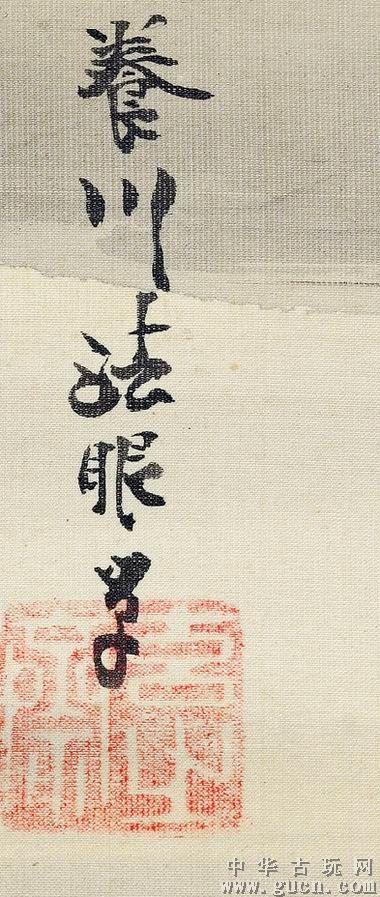 養川法眼筆
中华古玩网
www.gucn.com